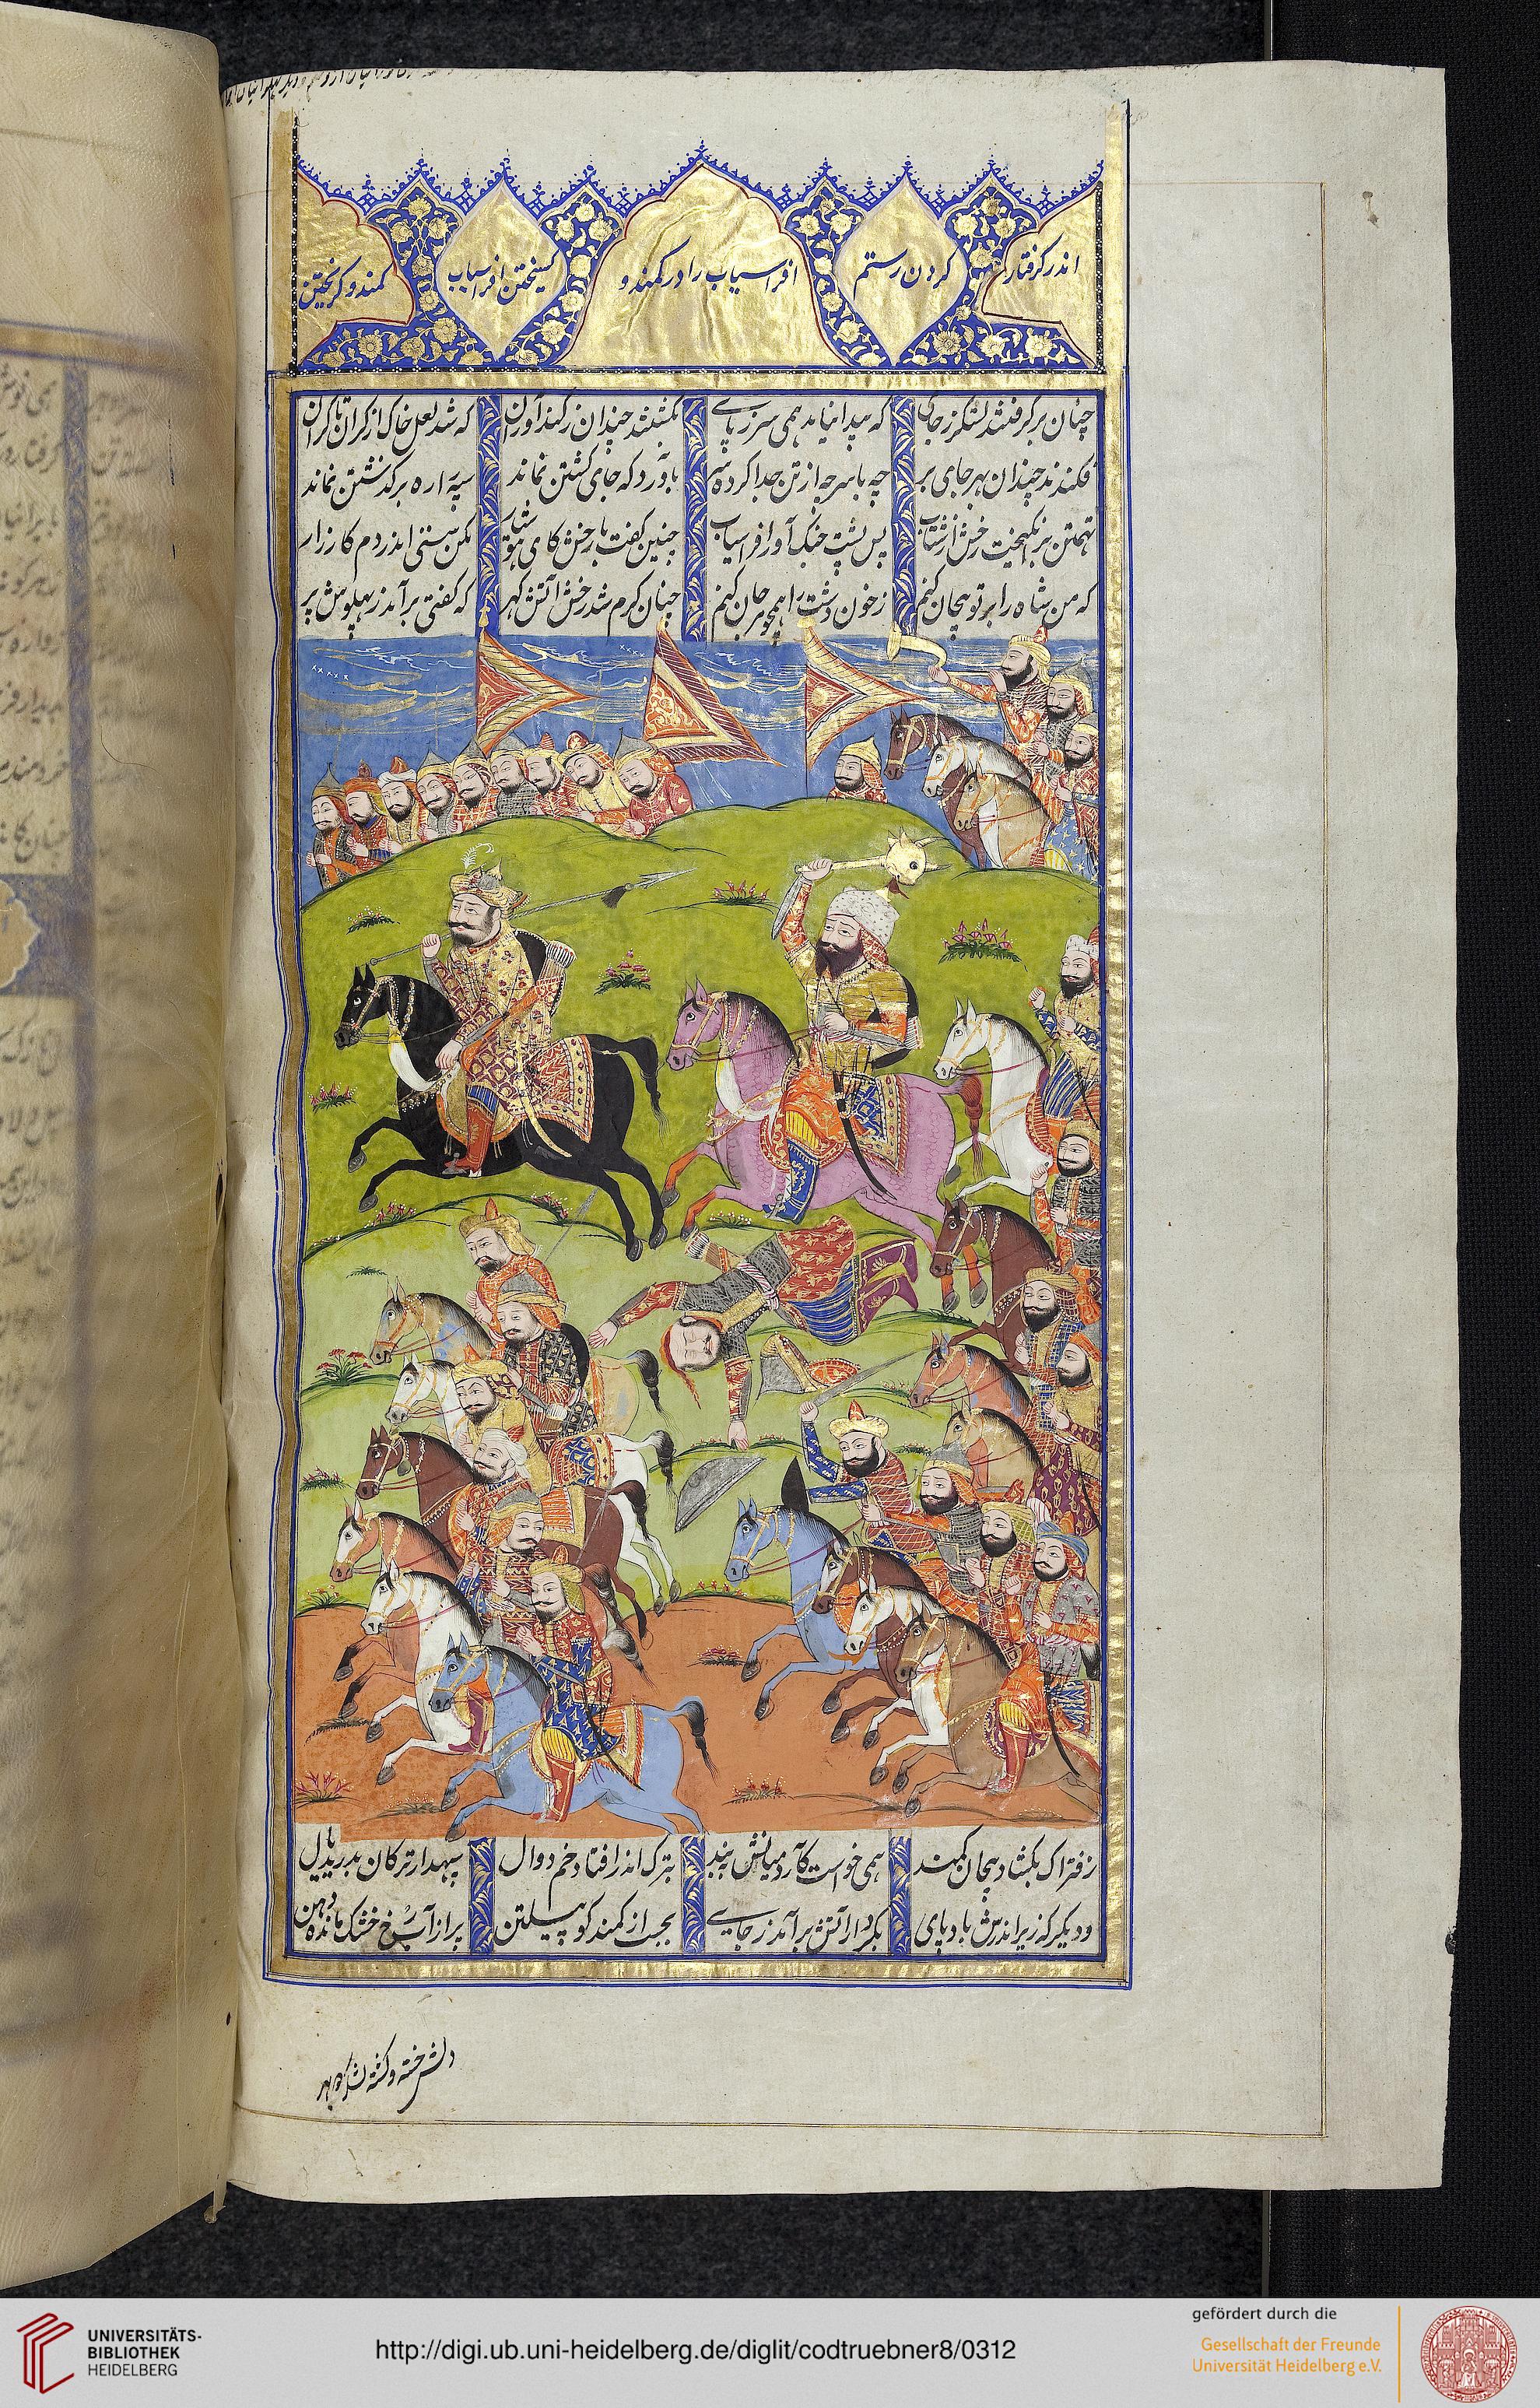 اندر گرفتار کردن رستم افراسیاب را در کمند و کسیختن افراسیاب کمند و کریختن
چنان برگرفتند لشکر ز جای که پیدا نیامد همی سر ز پای
بکشتند چندان ز کندآوران که شد لعل خاک از کران تا کران
فکندند چندان بهر جای بر چه با سر چه از تن جدا کرده سر
بآورد که جای کشتن نماند سپه را ره برکذشتن نماند
تهمتن برانکیخت رخش از شتاب پس پشت جنک آور افراسیاب
چنین کفت با رخش کای هوشیار مکن سستی اندر دم کارزار
که من شاه را بر تو بیجان کنم ز خون دشت را همچو مرجان کنم
چنان کرم شد رخش آتش کهر که کفتی برآمد ز پهلوش پر
ز فتراک بکشاد پیچان کمند همی خواست کآرد میانش ببند
بترک اندر افتاد خم دوال سپهدار ترکان بدزدید یال
و دیکر که زیر اندرش بادپای بکردار آتش برآمد ز جای
بجست از کمند کو پیلتن پر از آب رخ خشک مانده دهن
دلش خسته و کشته لشکر
UNIVERSITÄTS-
BIBLIOTHEK
HEIDELBERG
http://digi.ub.uni-heidelberg.de/diglit/codtruebner8/0312
gefördert durch die
Gesellschaft der Freunde
Universität Heidelberg e.V.